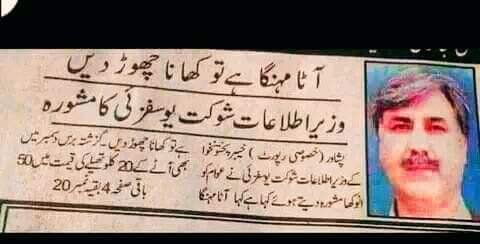 آٹا مہنگا ہے تو کھانا چھوڑ دیں
وزیر اطلاعات شوکت یوسفزئی کا مشورہ
پشاور (خصوصی رپورٹ) خیبر پختونخوا
کے وزیر اطلاعات شوکت یوسفزئی نے عوام کو
انوکھا مشورہ دیتے ہوئے کہا ہے کہا آٹا مہنگا
ہے تو کھانا چھوڑ دیں۔ گزشتہ برس دسمبر میں
بھی آٹے کے 20 کلو تھیلے کی قیمت میں 50
باقی صفحہ 4 بقیہ نمبر 20